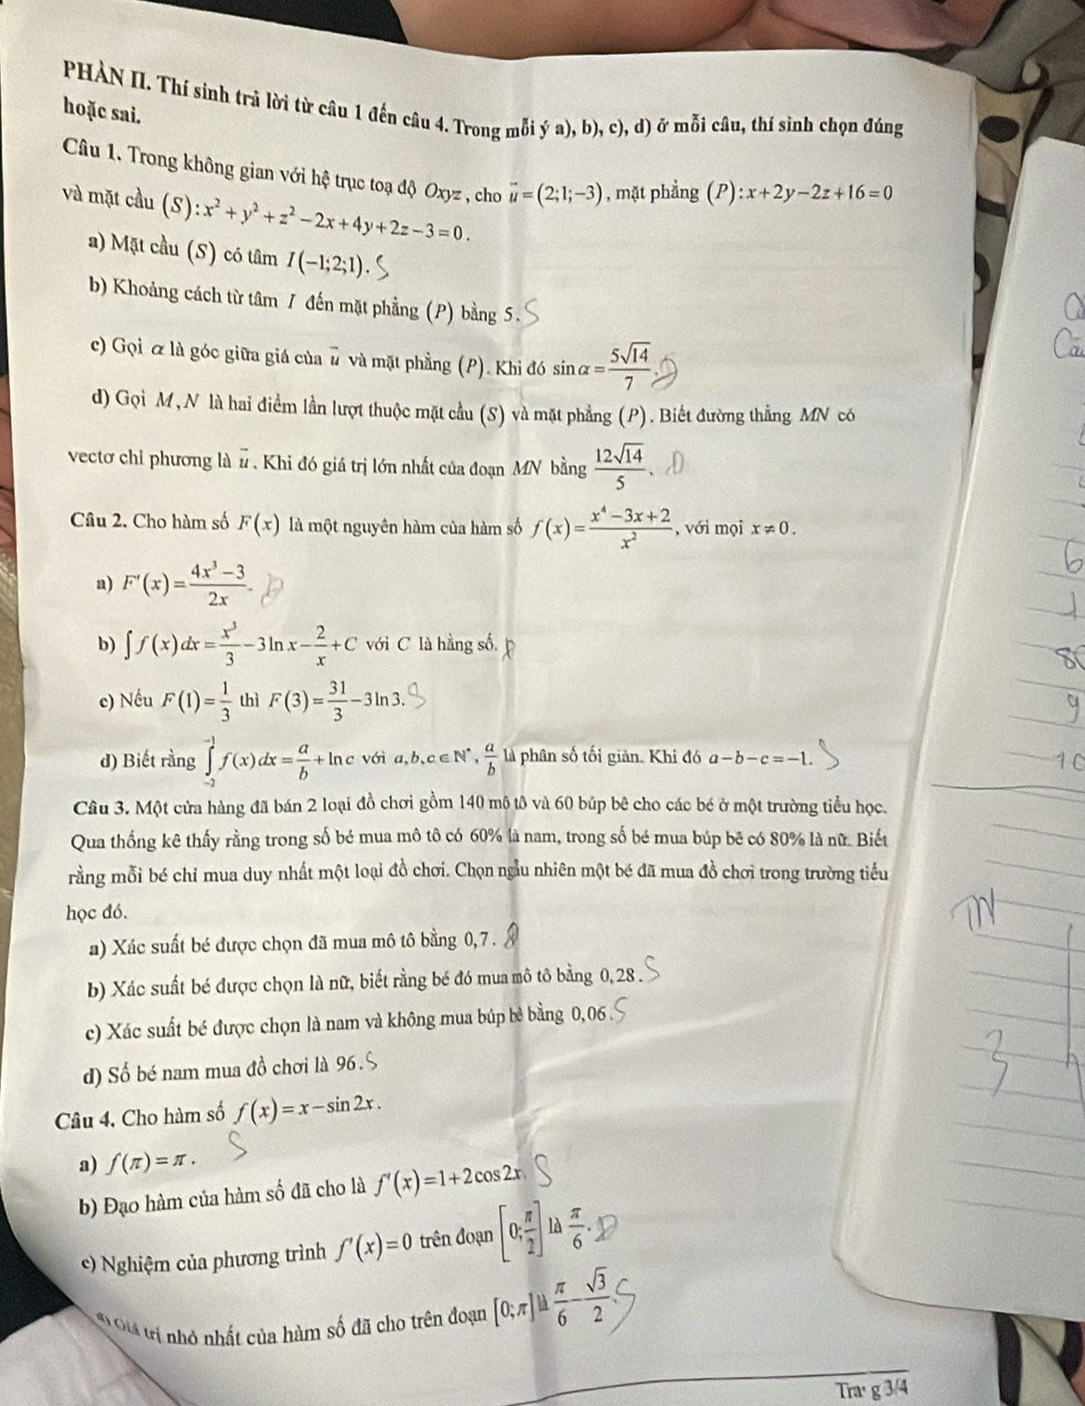 PHẦN II. Thí sinh trả lời từ câu 1 đến câu 4. Trong mỗi ý a), b), c), d) ở mỗi câu, thí sinh chọn đúng
hoặc sai.
Câu 1. Trong không gian với hệ trục toạ độ Oxyz, cho $\vec{u}=(2;1;-3)$, mặt phẳng $(P): x+2y-2z+16=0$
và mặt cầu $(S): x^2+y^2+z^2-2x+4y+2z-3=0$.
a) Mặt cầu (S) có tâm $I(-1;2;1)$. S
b) Khoảng cách từ tâm I đến mặt phẳng (P) bằng 5. S
c) Gọi α là góc giữa giá của $\vec{u}$ và mặt phẳng (P). Khi đó $\sin\alpha=\frac{5\sqrt{14}}{7}$. Đ
d) Gọi M, N là hai điểm lần lượt thuộc mặt cầu (S) và mặt phẳng (P). Biết đường thẳng MN có
vectơ chỉ phương là $\vec{u}$. Khi đó giá trị lớn nhất của đoạn MN bằng $\frac{12\sqrt{14}}{5}$. Đ
Câu 2. Cho hàm số $F(x)$ là một nguyên hàm của hàm số $f(x)=\frac{x^4-3x+2}{x^2}$, với mọi $x\neq 0$.
a) $F'(x)=\frac{4x^3-3}{2x}$. Đ
b) $\int f(x)dx=\frac{x^3}{3}-3\ln x-\frac{2}{x}+C$ với C là hằng số. Đ
c) Nếu $F(1)=\frac{1}{3}$ thì $F(3)=\frac{31}{3}-3\ln 3$. S
d) Biết rằng $\int_{-2}^{-1} f(x)dx=\frac{a}{b}+\ln c$ với $a,b,c\in\mathbb{N}^*$, $\frac{a}{b}$ là phân số tối giản. Khi đó $a-b-c=-1$. S
Câu 3. Một cửa hàng đã bán 2 loại đồ chơi gồm 140 mô tô và 60 búp bê cho các bé ở một trường tiểu học.
Qua thống kê thấy rằng trong số bé mua mô tô có 60% là nam, trong số bé mua búp bê có 80% là nữ. Biết
rằng mỗi bé chỉ mua duy nhất một loại đồ chơi. Chọn ngẫu nhiên một bé đã mua đồ chơi trong trường tiểu
học đó.
a) Xác suất bé được chọn đã mua mô tô bằng 0,7. Đ
b) Xác suất bé được chọn là nữ, biết rằng bé đó mua mô tô bằng 0,28. S
c) Xác suất bé được chọn là nam và không mua búp bê bằng 0,06. S
d) Số bé nam mua đồ chơi là 96. S
Câu 4. Cho hàm số $f(x)=x-\sin 2x$.
a) $f(\pi)=\pi$. S
b) Đạo hàm của hàm số đã cho là $f'(x)=1+2\cos 2x$. S
c) Nghiệm của phương trình $f'(x)=0$ trên đoạn $\left[0;\frac{\pi}{2}\right]$ là $\frac{\pi}{6}$. Đ
d) Giá trị nhỏ nhất của hàm số đã cho trên đoạn $[0;\pi]$ là $\frac{\pi}{6}-\frac{\sqrt{3}}{2}$. S
Trang 3/4
6
1
9
10
3